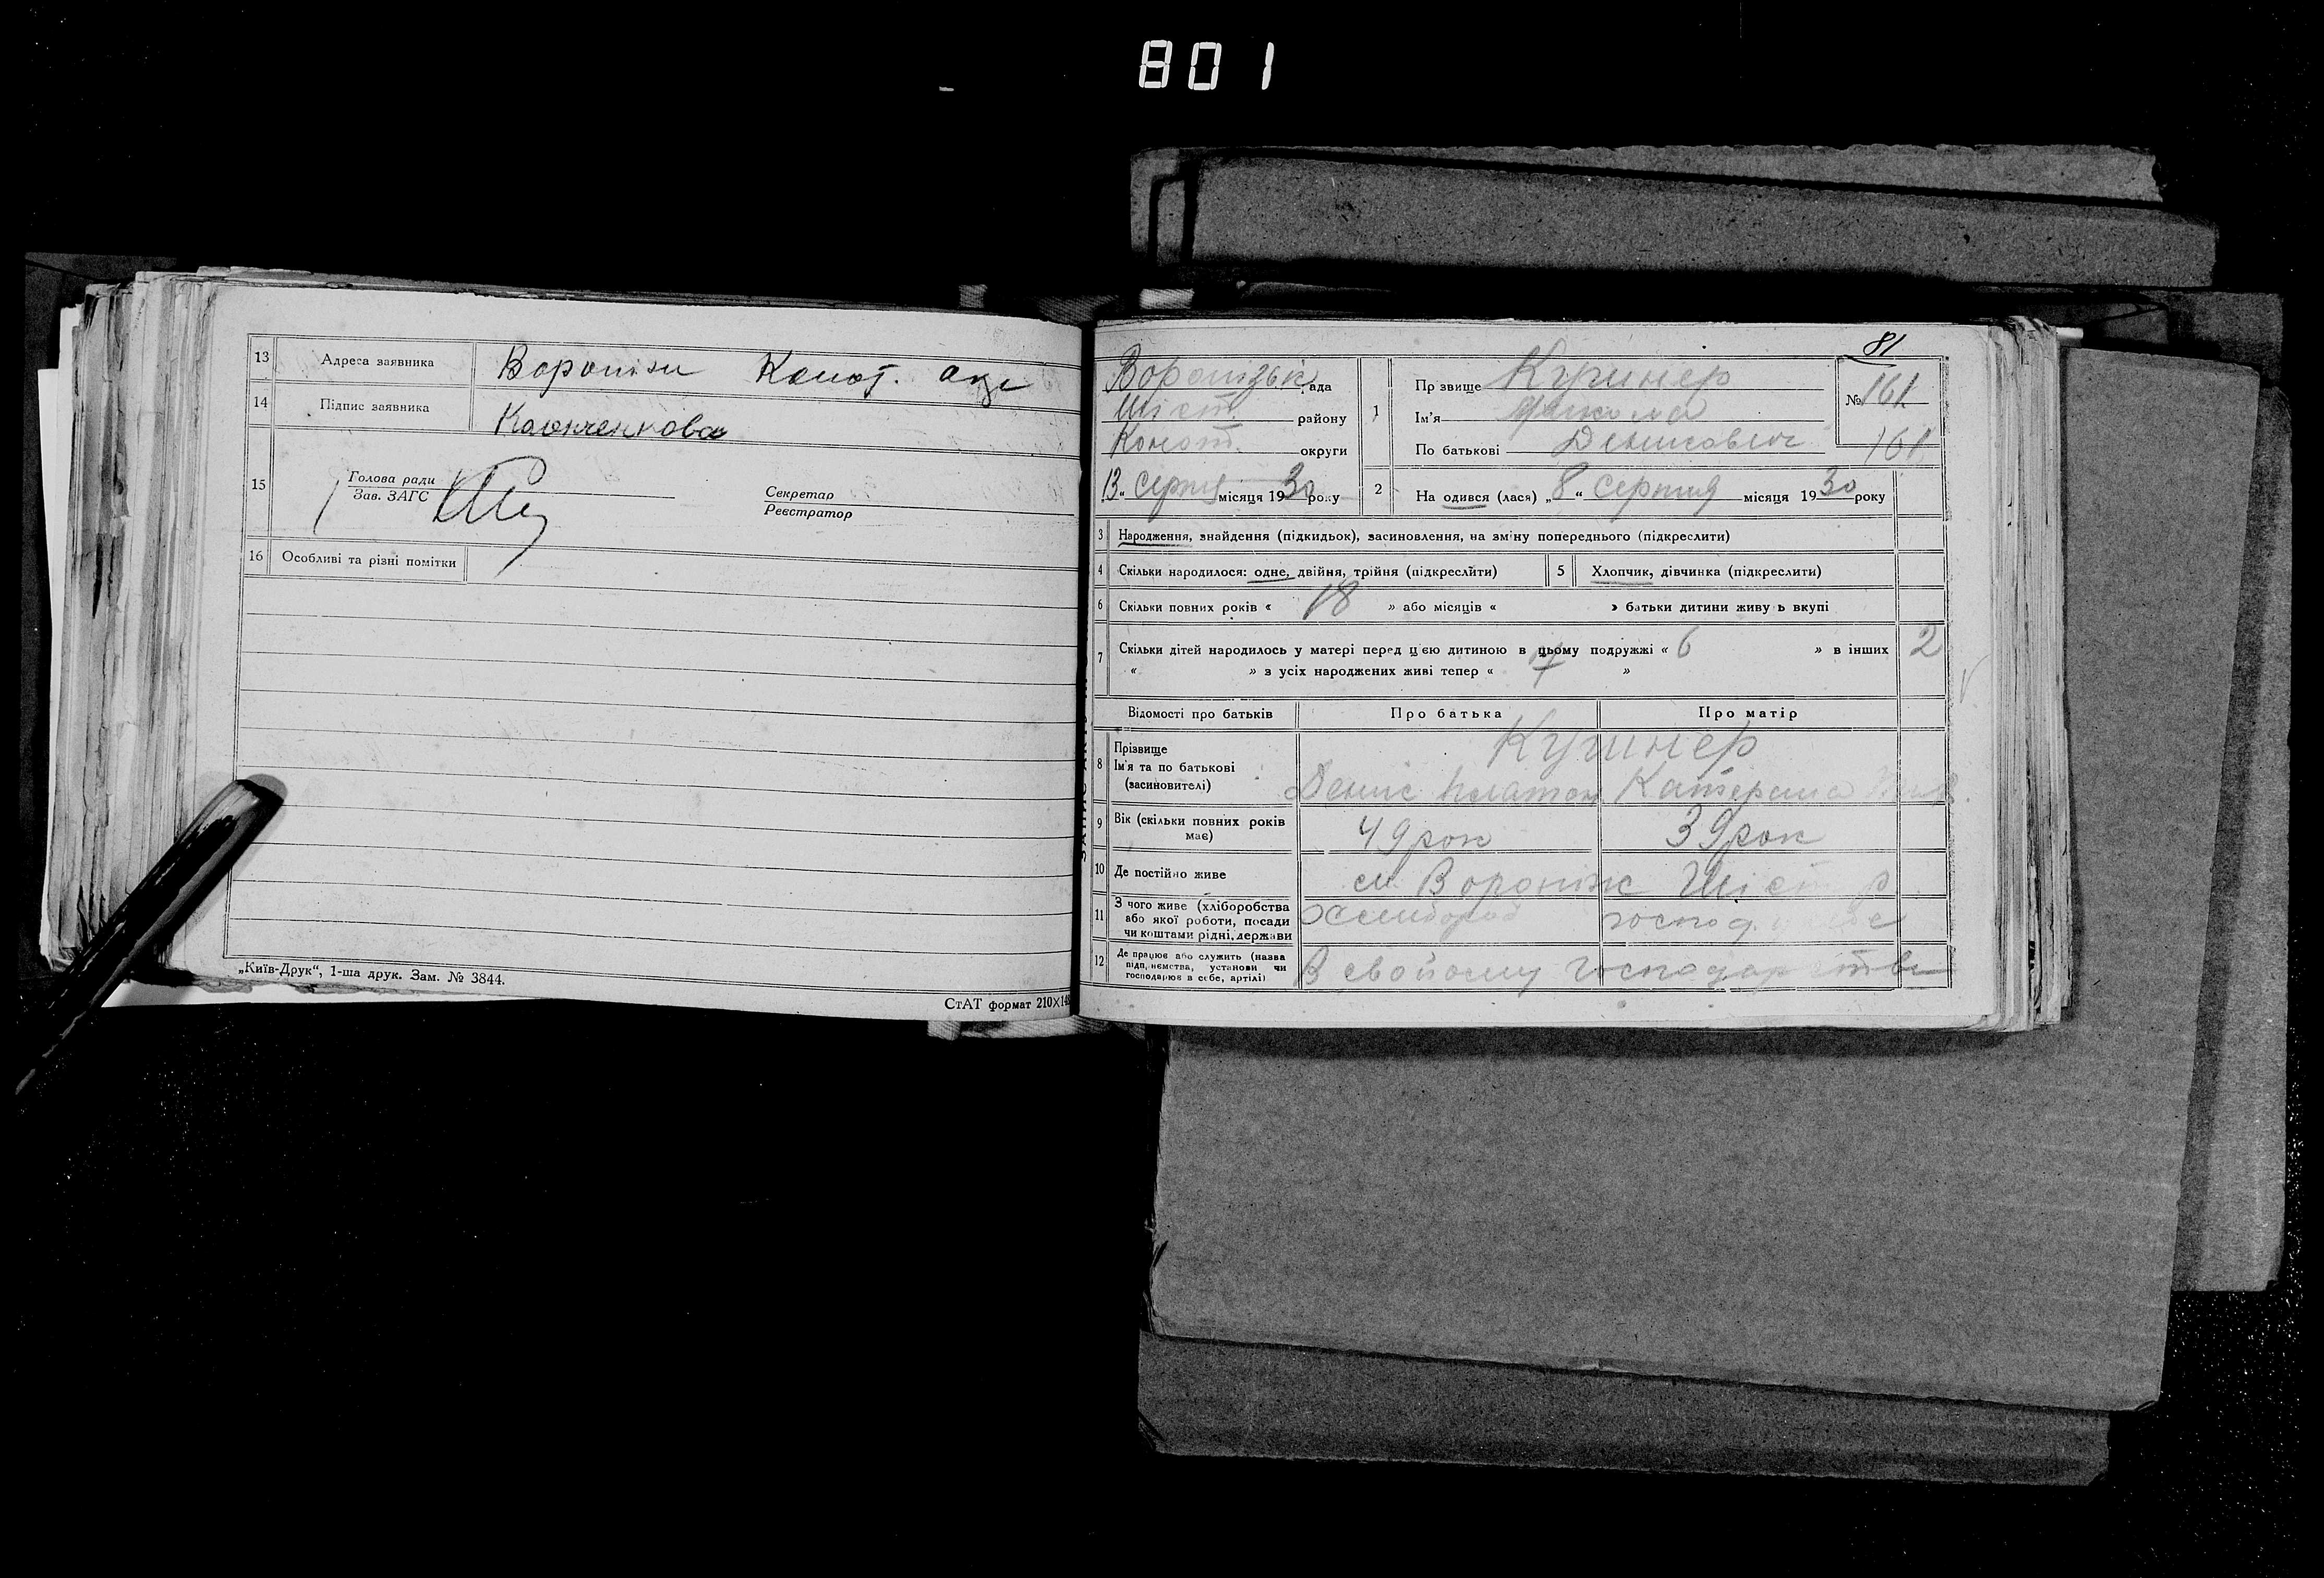 801
13 Адреса заявника Вороніж Коно
14 Підпис заявника
15 Голова ради
Зав. ЗАГС
Секретар
Реєстратор
16 Особливі та різні помітки
„Київ-Друк“, 1-ша друк. Зам. № 3844.
СтАТ формат 210×148
81
Воронізька рада
Шіст. району
Конот. округи
13 “ серпня місяця 1930 року
1 Пр звище Кушнер
Ім'я Микола
По батькові Денисович
№ 161
161
2 На одився (лася) „ 8 “ серпня місяця 1930 року
3 Народження, знайдення (підкидьок), засиновлення, на зміну попереднього (підкреслити)
4 Скільки народилося: одне, двійня, трійня (підкреслити)
5 Хлопчик, дівчинка (підкреслити)
6 Скільки повних років « 18 » або місяців « » батьки дитини живу ь вкупі
7 Скільки дітей народилось у матері перед цією дитиною в цьому подружжі « 6 » в інших 2
« » з усіх народжених живі тепер « »
Відомості про батьків Про батька Про матір
8 Прізвище
Ім'я та по батькові
(засиновителі)
Кушнер
Денис Платон Катерина
9 Вік (скільки повних років
має)
49 рок 39 рок
10 Де постійно живе
см. Вороніж Шіст р
11 З чого живе (хліборобства
або якої роботи, посади
чи коштами рідні, держави
господ.
12 Де працює або служить (назва
підприємства, установи чи
господарює в себе, артілі)
В свойому господарстві